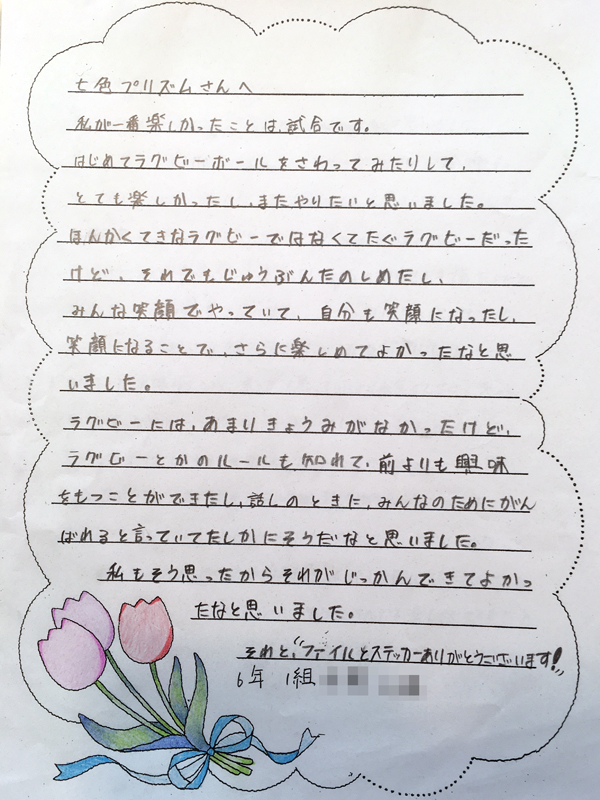 七色プリズムさんへ
私が一番楽しかったことは、試合です。
はじめてラグビーボールをさわってみたりして、
とても楽しかったし、またやりたいと思いました。
ほんかくてきなラグビーではなくてたぐラグビーだった
けど、それでもじゅうぶんたのしめたし、
みんな笑顔でやっていて、自分も笑顔になったし、
笑顔になることで、さらに楽しめてよかったなと思
いました。
ラグビーには、あまりきょうみがなかったけど、
ラグビーとかのルールも知れて、前よりも興味
をもつことができたし、話しのときに、みんなのためにがん
ばれると言っていてたしかにそうだなと思いました。
私もそう思ったからそれがじっかんできてよかっ
たなと思いました。
それと、ファイルとステッカーありがとうございます!!
6年 1組